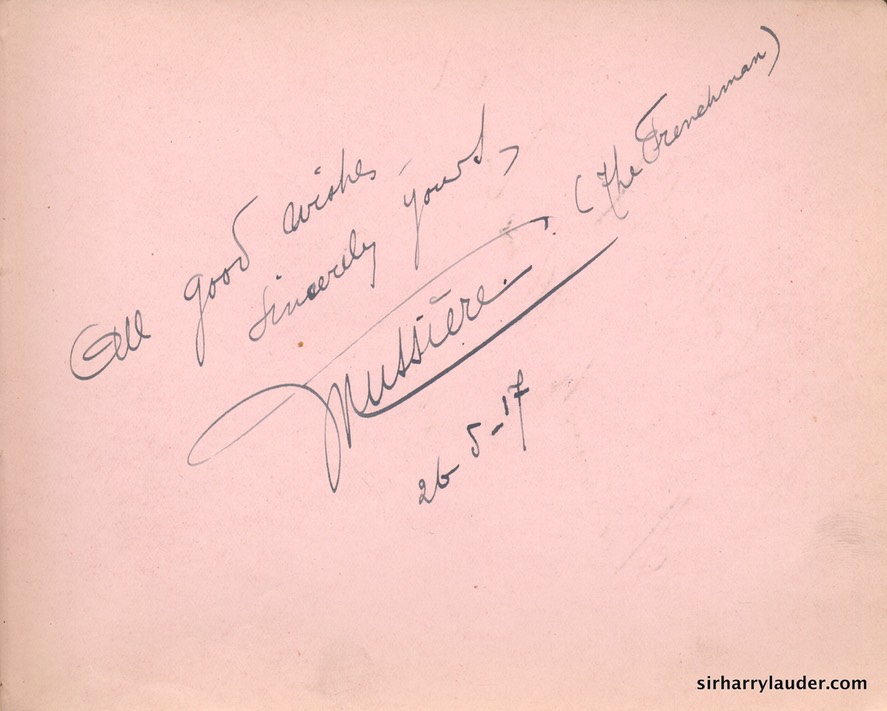 All good wishes -
Sincerely yours,
Mussière. (The Frenchman)
26-5-17
sirharrylauder.com